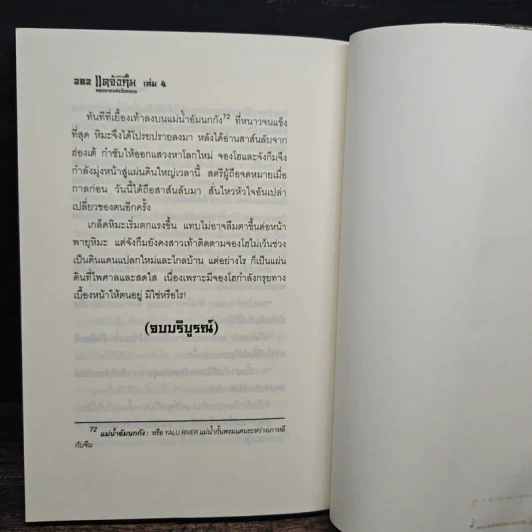 282 แดจังกึม เล่ม 4
ทันทีที่เยื้องเท้าลงบนแม่น้ำอัมนกกัง72 ที่หนาวจนแข็ง
ที่สุด หิมะจึงได้โปรยปรายลงมา หลังได้อ่านสาส์นลับจาก
ฮ่องเต้ กำชับให้ออกแสวงหาโลกใหม่ จองโฮและจังกึมจึง
กำลังมุ่งหน้าสู่แผ่นดินใหญ่เวลานี้ สตรีผู้ถือจดหมายเมื่อ
กาลก่อน วันนี้ได้ถือสาส์นลับมา สั่นไหวหัวใจอันเปล่า
เปลี่ยวของตนอีกครั้ง
เกล็ดหิมะเริ่มตกแรงขึ้น แทบไม่อาจลืมตาขึ้นต่อหน้า
พายุหิมะ แต่จังกึมยังคงสาวเท้าติดตามจองโฮไม่เว้นช่วง
เป็นดินแดนแปลกใหม่และไกลบ้าน แต่อย่างไร ก็เป็นแผ่น
ดินที่ไพศาลและสดใส เนื่องเพราะมีจองโฮกำลังกรุยทาง
เบื้องหน้าให้ตนอยู่ มิใช่หรือไร!
(จบบริบูรณ์)
72 แม่น้ำอัมนกกัง : หรือ YALU RIVER แม่น้ำกั้นพรมแดนระหว่างเกาหลี
กับจีน